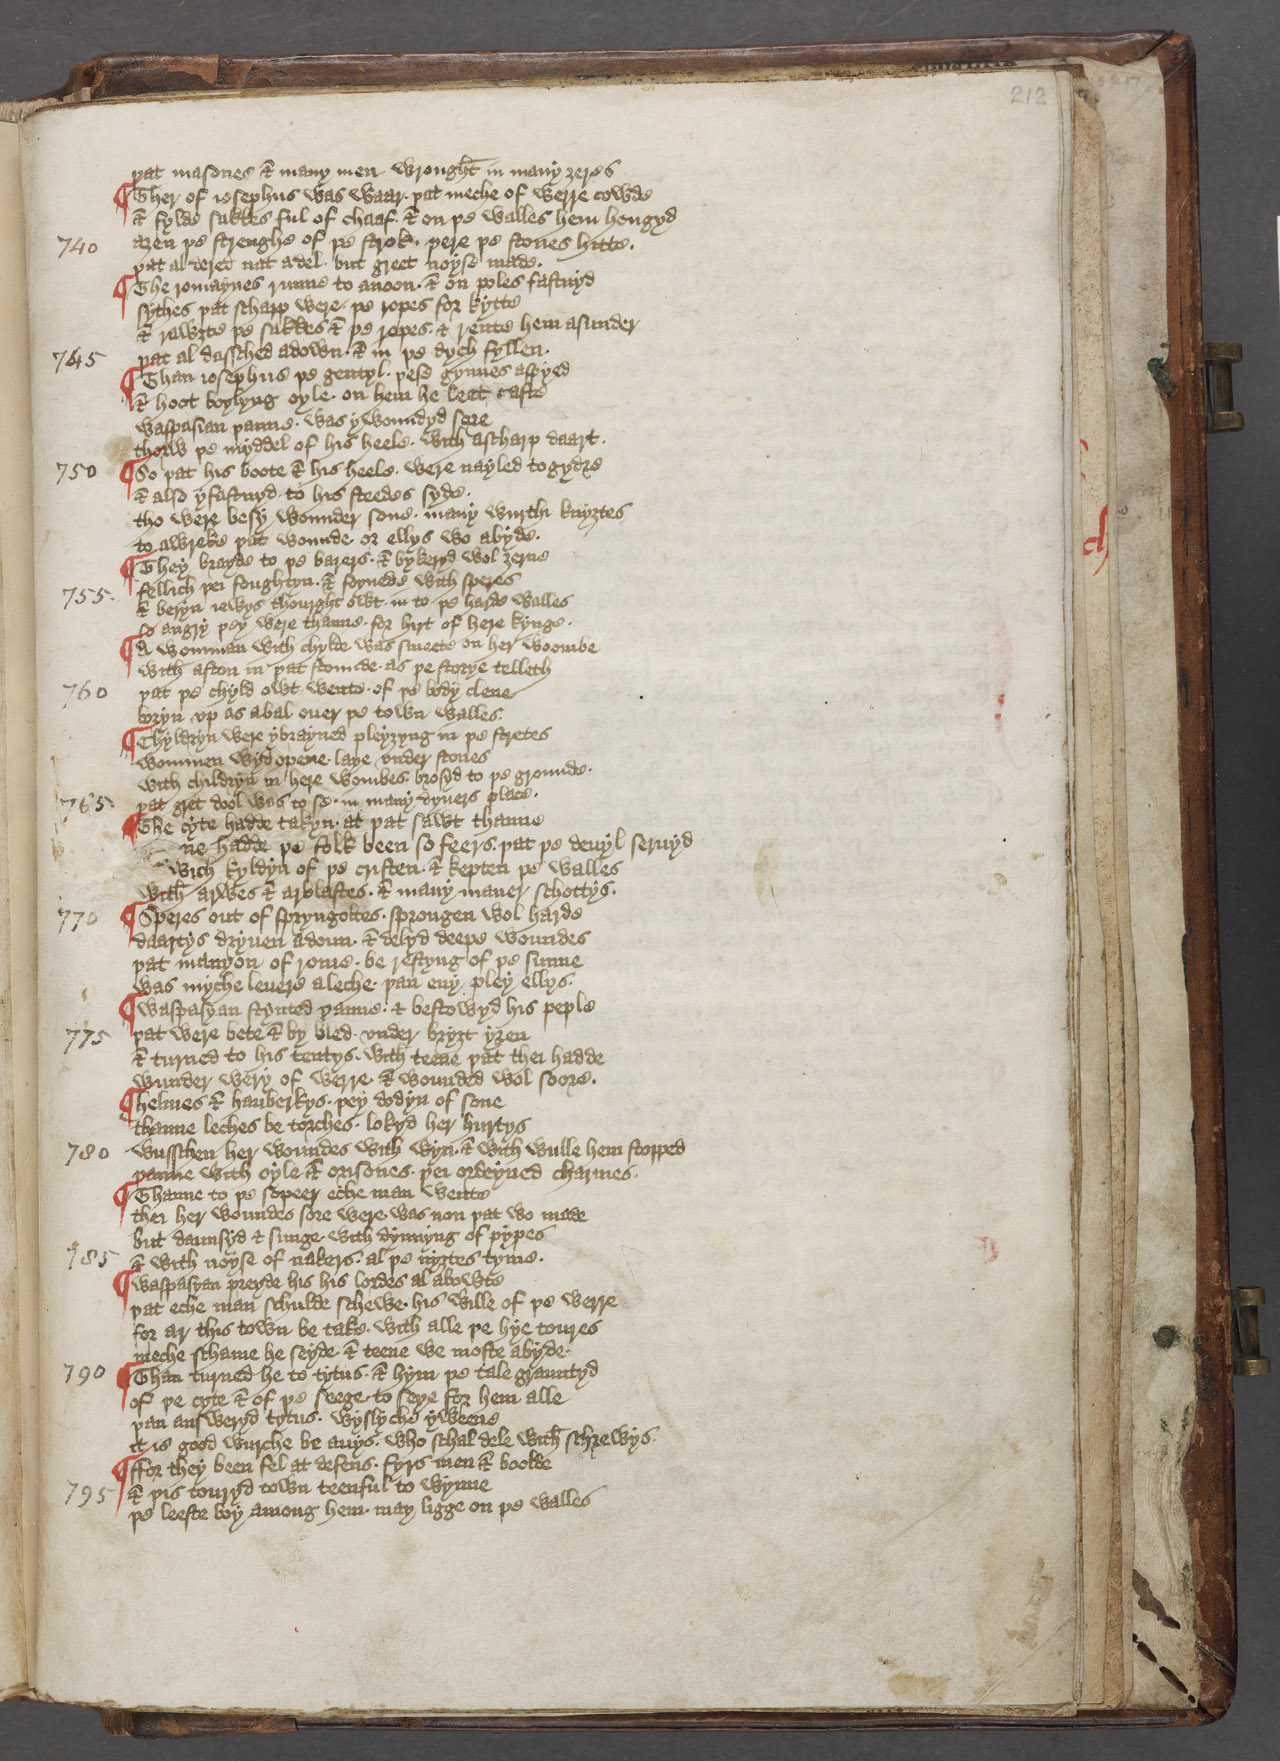 212
þat masones & many men wrought in many ȝeres
¶ Ther of iosephus was waar · þat meche of werre cowde
& fylde sakkes ful of chaaf · & on þe walles hem hengyd
740 aȝen þe strengþe of þe strok · þere þe stones hitte ·
þat al dered nat adel · but greet noyse made ·
¶ The romaynes runne to anoon · & on poles fastnyd
sythes þat scharp were · þe ropes for kytte
& rawȝte þe sakkes & þe ropes · & rente hem asunder
745 þat al dassched adown · & in þe dych fyllen ·
¶ Than iosephus þe gentyl · þese gynnes aspyed
& hoot boylyng oyle · on hem he leet caste
waspasian þanne · was ywoundyd sore
thorw þe myddel of his heele · with ascharp daart ·
750 ¶ So þat his boote & his heele · were nayled togydre
& also yfastnyd · to his steedes syde ·
tho were besy wounder sone · many wurthi knyȝtes
to awreke þat wounde · or ellys wo abyde ·
¶ They brayde to þe barers · & bykeryd wol ȝerne
755 · fellich þei foughtyn · & foynede with speres
& beryn iewys thourght owt · in to þe harde walles
so angry þey were thanne · for hirt of here kynge ·
¶ A womman with chylde was smeete on her woombe
with aston in þat stounde · as þe storye telleth
760 þat þe chyld owt wente · of þe body clene
boryn vp as abal ouer þe town walles ·
¶ Chyldryn were ybrayned pleyȝyng in þe stretes
wommen wyd opene · laye vnder stones
with childryn in here wombes · brosyd to þe grounde ·
765 þat gret dool was to se · in many dyuers place ·
¶ The cyte hadde takyn · at þat sawt thanne
ne hadde þe folk been so feers · þat þe deuyl seruyd
wich kyldyn of þe cristen · & kepten þe walles
with arwes & arblastes · & many maner schottys ·
770 ¶ Speres out of spryngoltes · sprongen wol harde
daartys dryuen adoun · & delyd deepe woundes
þat manyon of rome · be restyng of þe sunne
was myche leuere aleche · þan eny pley ellys ·
¶ waspasyan stynted þanne · & bestowyd his peple
775 þat were bete & by bled · vnder bryȝt yren
& turned to his tentys · with teene þat thei hadde
wunder wery of werre · & wounded wol soore ·
¶ helmes & hauberkys · þey dodyn of sone
thanne leches be torches · lokyd her hurtys
780 wusschen her woundes with wyn · & with wulle hem stopped
þanne with oyle & orisones · þei ordeyned charmes ·
¶ Thanne to þe sopeer eche man wente
thei her woundes sore were · was non þat wo made
but daunsyd & sunge · with dynnyng of pypes
785 & with noyse of nakers · al þe nyȝtes tyme ·
¶ waspasyan preyde his his lordes al abowte
þat eche man schulde schewe · his wille of þe werre
for ar this town be take · with alle þe hye toures
meche schame he seyde · & teene we moste abyde ·
790 ¶ Than turned he to tytus · & hym þe tale grauntyd
of þe cyte & of þe seege · to seye for hem alle
þan answeryd tytus · wyslyche yweene
it is good wurche be auys · who schal dele with schrewys ·
¶ ffor they been fel at defens · fyrs men & boolde
795 & þis touryd town teenful to wynne
þe leeste boy among hem · may ligge on þe walles